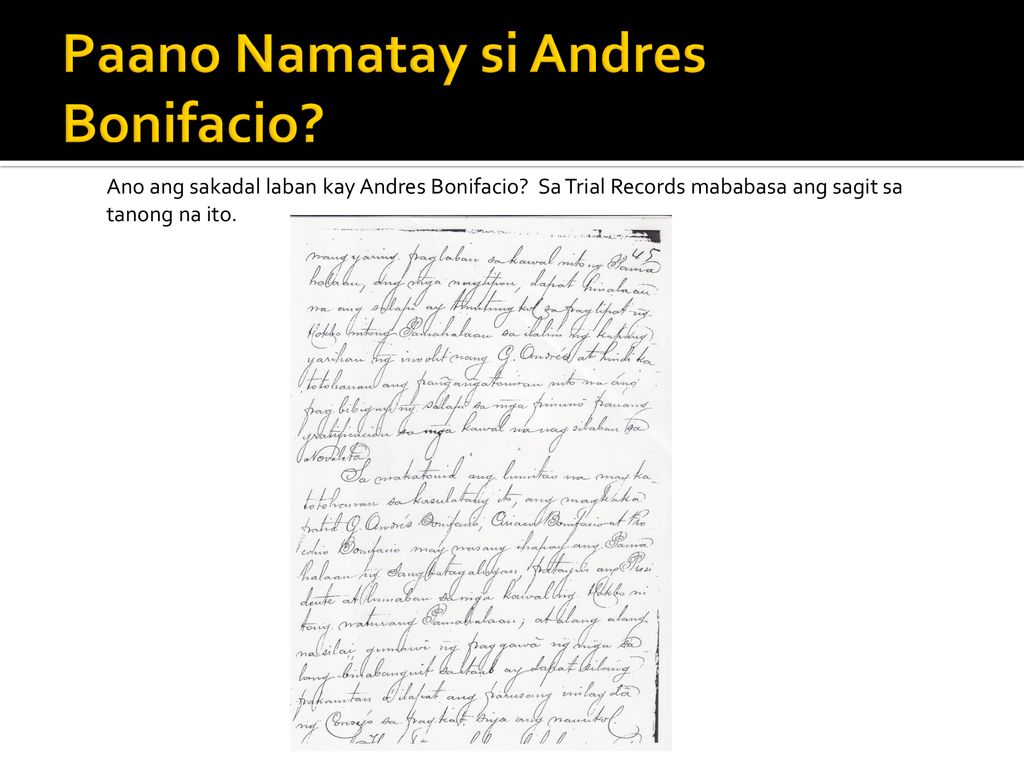 Paano Namatay si Andres
Bonifacio?
Ano ang sakadal laban kay Andres Bonifacio? Sa Trial Records mababasa ang sagit sa
tanong na ito.
45
nang yaring paglaban sa kawal nitong Pama
halaan, ang mga nagtipon, dapat hinalaan
na ang salapi ay tumutungkol sa paglipat ng
Hokbo nitong Pamahalaan sa ilalim ng kapang
yarihan ng inoolit nang G. Andrés, at hindi ka
totohanan ang pangangatouiran nito na ang
pag bibigay ng salapi sa mga pinunò pauang
gratificacion sa mga kawal na nag silaban sa
Noveleta
Sa makatouid ang lumitao na may ka
totohanan sa kasulatang ito, ang magkaka
patid G. Andrés Bonifacio, Ciriaco Bonifacio at Pro
copio Bonifacio may nasang ihapay ang Pama
halaan ng Sangkatagalugan, patayin ang Presi
dente at lumaban sa mga kawal ng Hokbo ni
tong naturang Pamahalaan; at alang alang
na sila'i, gumawi ng paggawâ ng mga sa
lang binabanguit sa itaas ay dapat silang
pakamtan o ilapat ang parusang inilagdâ
ng Consejo sa pagkat siya ang nauukol.